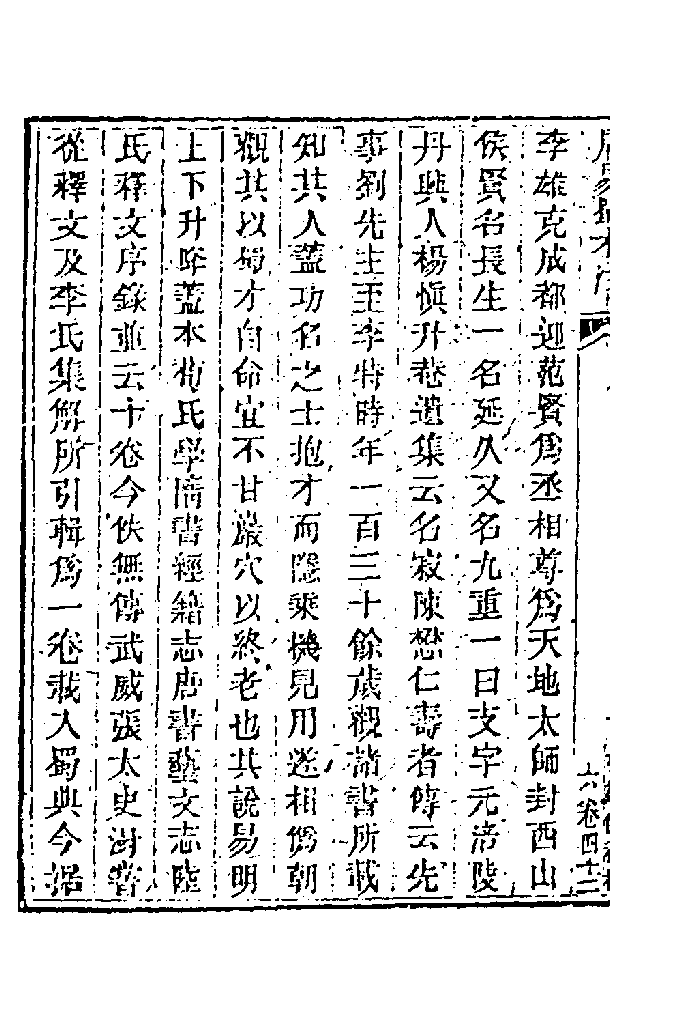 李雄克成都迎范賢爲丞相尊爲天地太師封西山
侯賢名長生一名延久又名九重一曰支字元涪陵
丹興人楊愼升菴遺集云名寂陳懋仁壽者傳云先
事劉先生至李特時年一百三十餘歲觀諸書所載
知其人蓋功名之士抱才而隱乘機見用遂相僞朝
觀其以蜀才自命宜不甘巖穴以終老也其說易明
上下升降蓋本荀氏學隋書經籍志唐書藝文志陸
氏釋文序錄並云十卷今佚無傳武威張太史澍嘗
從釋文及李氏集解所引輯爲一卷載入蜀典今據